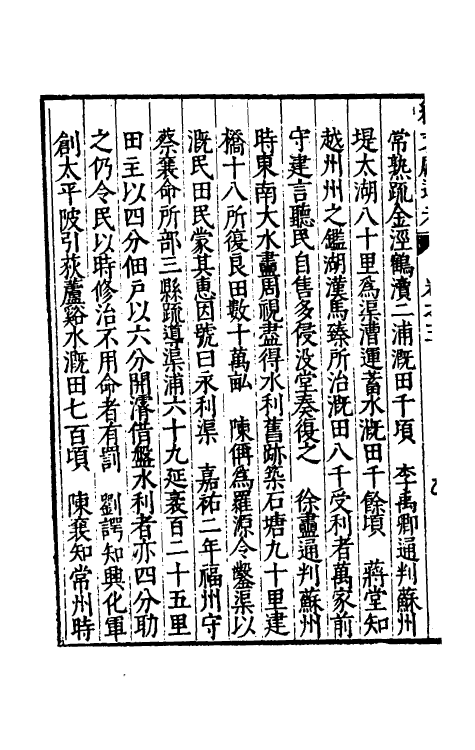 常熟疏金涇鶴瀆二浦溉田千頃　李禹卿通判蘇州
堤太湖八十里爲渠漕運蓄水溉田千餘頃　蔣堂知
越州州之鑑湖漢馬臻所治溉田八千受利者萬家前
守建言聽民自售多侵没堂奏復之　徐𧗾通判蘇州
時東南大水𧗾周視盡得水利舊跡築石塘九十里建
橋十八所復良田數十萬畝　陳偁爲羅源令鑿渠以
溉民田民蒙其惠因號曰永利渠　嘉祐二年福州守
蔡襄命所部三縣疏導渠浦六十九延袤百二十五里
田主以四分佃戶以六分開濬借盤水利者亦四分助
之仍令民以時修治不用命者有罰　劉諤知興化軍
創太平陂引荻蘆谿水溉田七百頃　陳襄知常州時